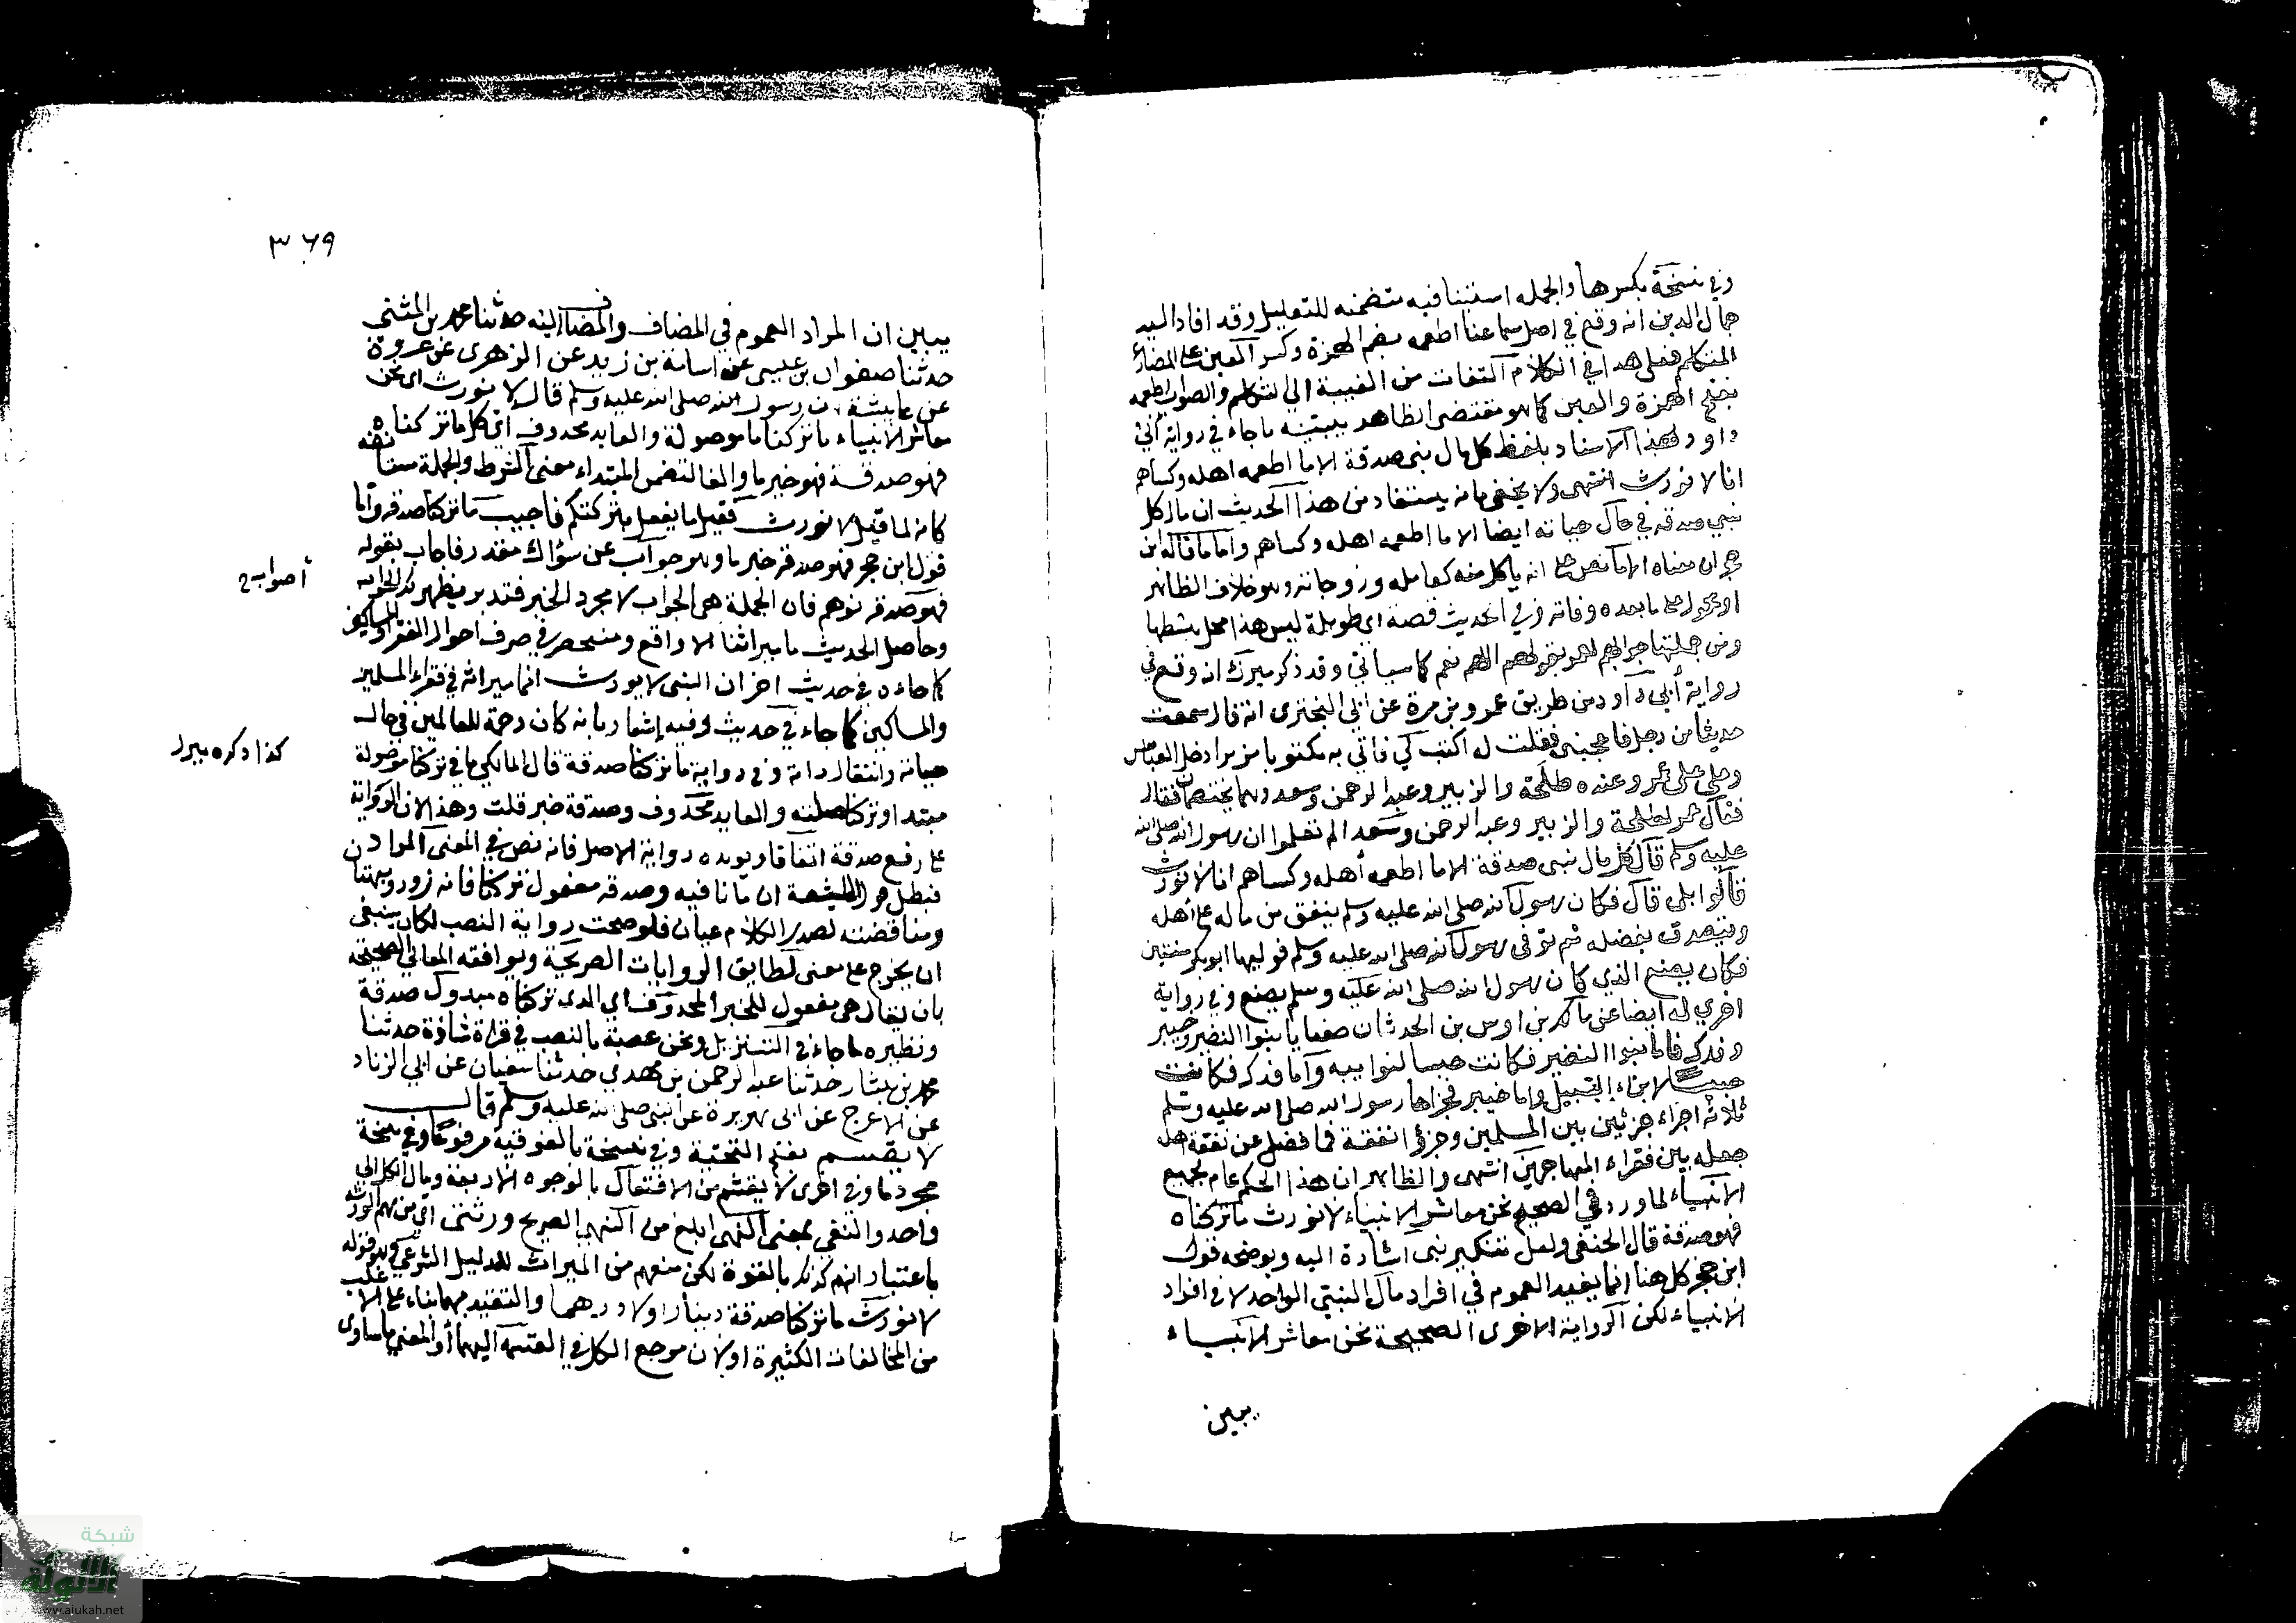 وفي نسخة بكسرها والجملة استئنافيه متضمنه للتعليل وقد افاد السيد
جمال الدين انه وقع في اصل سماعنا اطعمه بضم الهمزة وكسر العين على المضارع
المتكلم فعلى هذا في الكلام التفات من الغيبة الى التكلم والصواب اطعمه
بفتح الهمزة والعين كما هو مقتضى الظاهر يبينه ما جاء في رواية أبي
داود لهذا الاسناد بلفظ كل مال نبي صدقة الا ما اطعمه اهله وكساهم
انا لا نورث انتهى ولا يخفى مانه يستفاد من هذا الحديث ان مال كل
نبي صدقه في حال حياته ايضا الا ما اطعمه اهله وكساهم واما ما قاله ابن
حجر ان معناه الا ما نص على انه ياكل منه كعامله وزوجاته وهو خلاف الظاهر
او على ما بعده وفاته وفي الحديث قصة اي طويلة ليس هذا محل بسطها
ومن جملتها جوابهم لعمر بقولهم اللهم نعم كما سياتي وقد ذكر ميرك انه وقع في
رواية أبي داود من طريق عمرو بن مرة عن ابي البختري انه قال سمعت
حديثا من رجل فاعجبني فقلت له اكتب لي فاتي به مكتوبا مزبرا دخل العباس
وعلي على عمر وعنده طلحة والزبير وعبد الرحمن وسعد وهما يختصمان فقال
فقال عمر لطلحة والزبير وعبد الرحمن وسعد الم تعلموا ان رسول الله صلى الله
عليه وسلم قال كل مال نبي صدقة الا ما اطعمه أهله وكساهم انا لا نورث
قالوا بلى قال فكان رسول الله صلى الله عليه وسلم ينفق من ماله على أهله
ويتصدق بفضله ثم توفى رسول الله صلى الله عليه وسلم فوليها ابوبكر سنتين
فكان يصنع الذي كان رسول الله صلى الله عليه وسلم يصنع وفي رواية
اخرى له ايضا عن مالك بن اوس بن الحدثان صفايا بنوا النضير وخيبر
وفدك فاما بنوا النضير فكانت حبسا لنوايبه وأما فدك فكانت
حبسا لابناء السبيل واما خيبر فجزاها رسول الله صلى الله عليه وسلم
ثلاثه اجزاء جزئين بين المسلمين وجزؤا نفقة فما فضل عن نفقة اهله
جعله بين فقراء المهاجرين انتهى والظاهر ان هذا الحكم عام لجميع
الانبياء لما ورد في الصحيح نحن معاشر الانبياء لا نورث ما تركناه
فهو صدقة قال الحنفي ولعل تنكير نبي اشارة اليه ويوضحه قول
ابن حجر كل هنا انما يفيد العموم في افراد مال النبي الواحد لا في افراد
الانبياء لكن الرواية الاخرى الصحيحة نحن معاشر الانبياء
يبين
٣٦٩
يبين ان المراد العموم في المضاف والمضاف اليه حدثنا محمد بن المثنى
حدثنا صفوان بن عيسى عن اسامة بن زيد عن الزهرى عن عروة
عن عايشة ان رسول الله صلى الله عليه وسلم قال لا نورث اى نحن
معاشر الانبياء ما تركنا ما موصولة والعايد محذوف اى كل ما تركناه
فهو صدقة فهو خبر ما والفا لتضمن المبتداء معنى الشرط والجملة مستانفه
كانه لما قيل لا نورث فقيل ما يفعل بتركتكم فاجيب ما تركنا صدقه واما
قول ابن حجر فهو صدقه خبر ما وهو جواب عن سؤال مقدر فاجاب بقوله
فهو صدقه توهم فان الجملة هى الجواب لا مجرد الخبر فتدبر يظهر لك الجوابه
أصوابه
وحاصل الحديث ما ميراثنا الا واقع ومنحصر في صرف احوال الفقراء والمساكين
كما جاءه في حديث اخر ان النبى لا يورث انما ميراثه في فقراء المسلمين
والمساكين كما جاء في حديث وفيه إشعار بانه كان رحمة للعالمين في حال
حياته وانتقال ذاته وفي رواية ما تركنا صدقة قال المالكي ما في تركنا موصولة
كذا ذكره ميرك
مبتدا وتركنا صلته والعايد محذوف وصدقة خبر قلت وهذا لان الرواية
على رفع صدقة اتفاقا ويويده رواية الاصل فانه نص في المعنى المراد
فبطل قول الشيعة ان ما نافيه وصدقه مفعول تركنا فانه زور وبهتان
ومناقضته لصدر الكلام عيان فلو صحت رواية النصب لكان ينبغى
ان يخرج على معنى لطابق الروايات الصريحة ويوافقه المعاني الصحيحة
بان يقال هى مفعول للخبر المحذوف اي الذى تركناه مبذول صدقة
ونظيره ما جاء في التنزيل ونحن عصبة بالنصب في قراة شاذة حدثنا
محمد بن بشار حدثنا عبد الرحمن بن مهدي حدثنا سفيان عن ابي الزناد
عن الاعرج عن ابى هريرة عن النبى صلى الله عليه وسلم قال
لا يقسم بفتح التحتية وفي نسخة بالفوقية مرفوعا وفي نسخة
مجزوما وفي اخرى لا يقتسم من الافتعال بالوجوه الاربعة ومال الكل الى
واحد والنفي بمعنى النهى ابلغ من النهى الصريح ورثتى اي من هم الورثه
باعتبار انهم كذلك بالقوة لكن منعهم من الميراث للدليل الشرعى وهو قوله
لا نورث ما تركنا صدقة دينارا ولا درهما والتقييد بهما بناء على الاغلب
من المخالفات الكثيرة اولان مرجع الكل في القسمة اليهما أو المعنى ما يساوى
شبكة
الألوكة
www.alukah.net